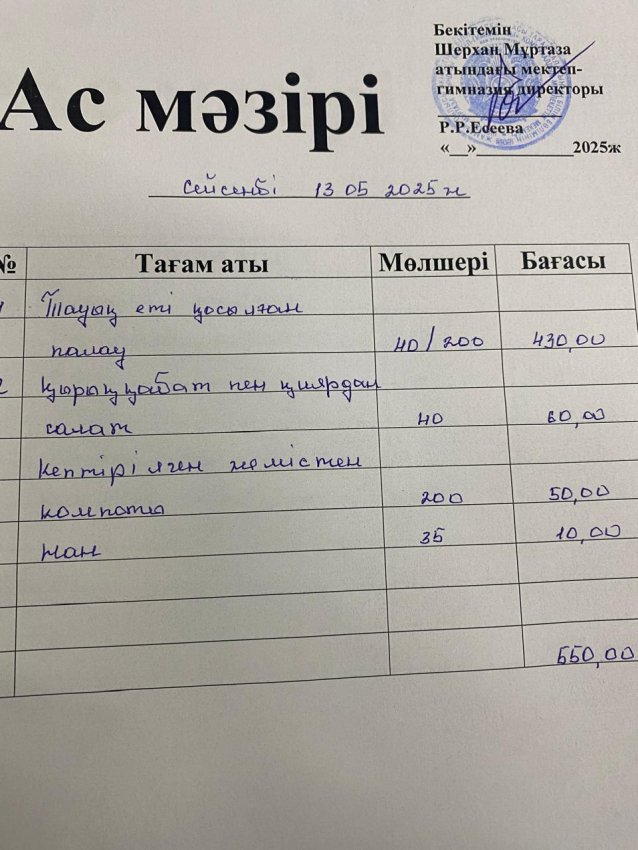 Бекітемін
Шерхан Мұртаза
атындағы мектеп-
гимназия директоры
Р.Р.Есеева
«__»____________2025ж
Ас мәзірі
Сейсенбі 13 05 2025ж
№ Тағам аты Мөлшері Бағасы
1 Тауық еті қосылған
палау 40/200 430,00
2 Қырыққабат пен қиярдан
салат 40 60,00
Кептірілген жемістен
компоты 200 50,00
Нан 35 10,00
550,00